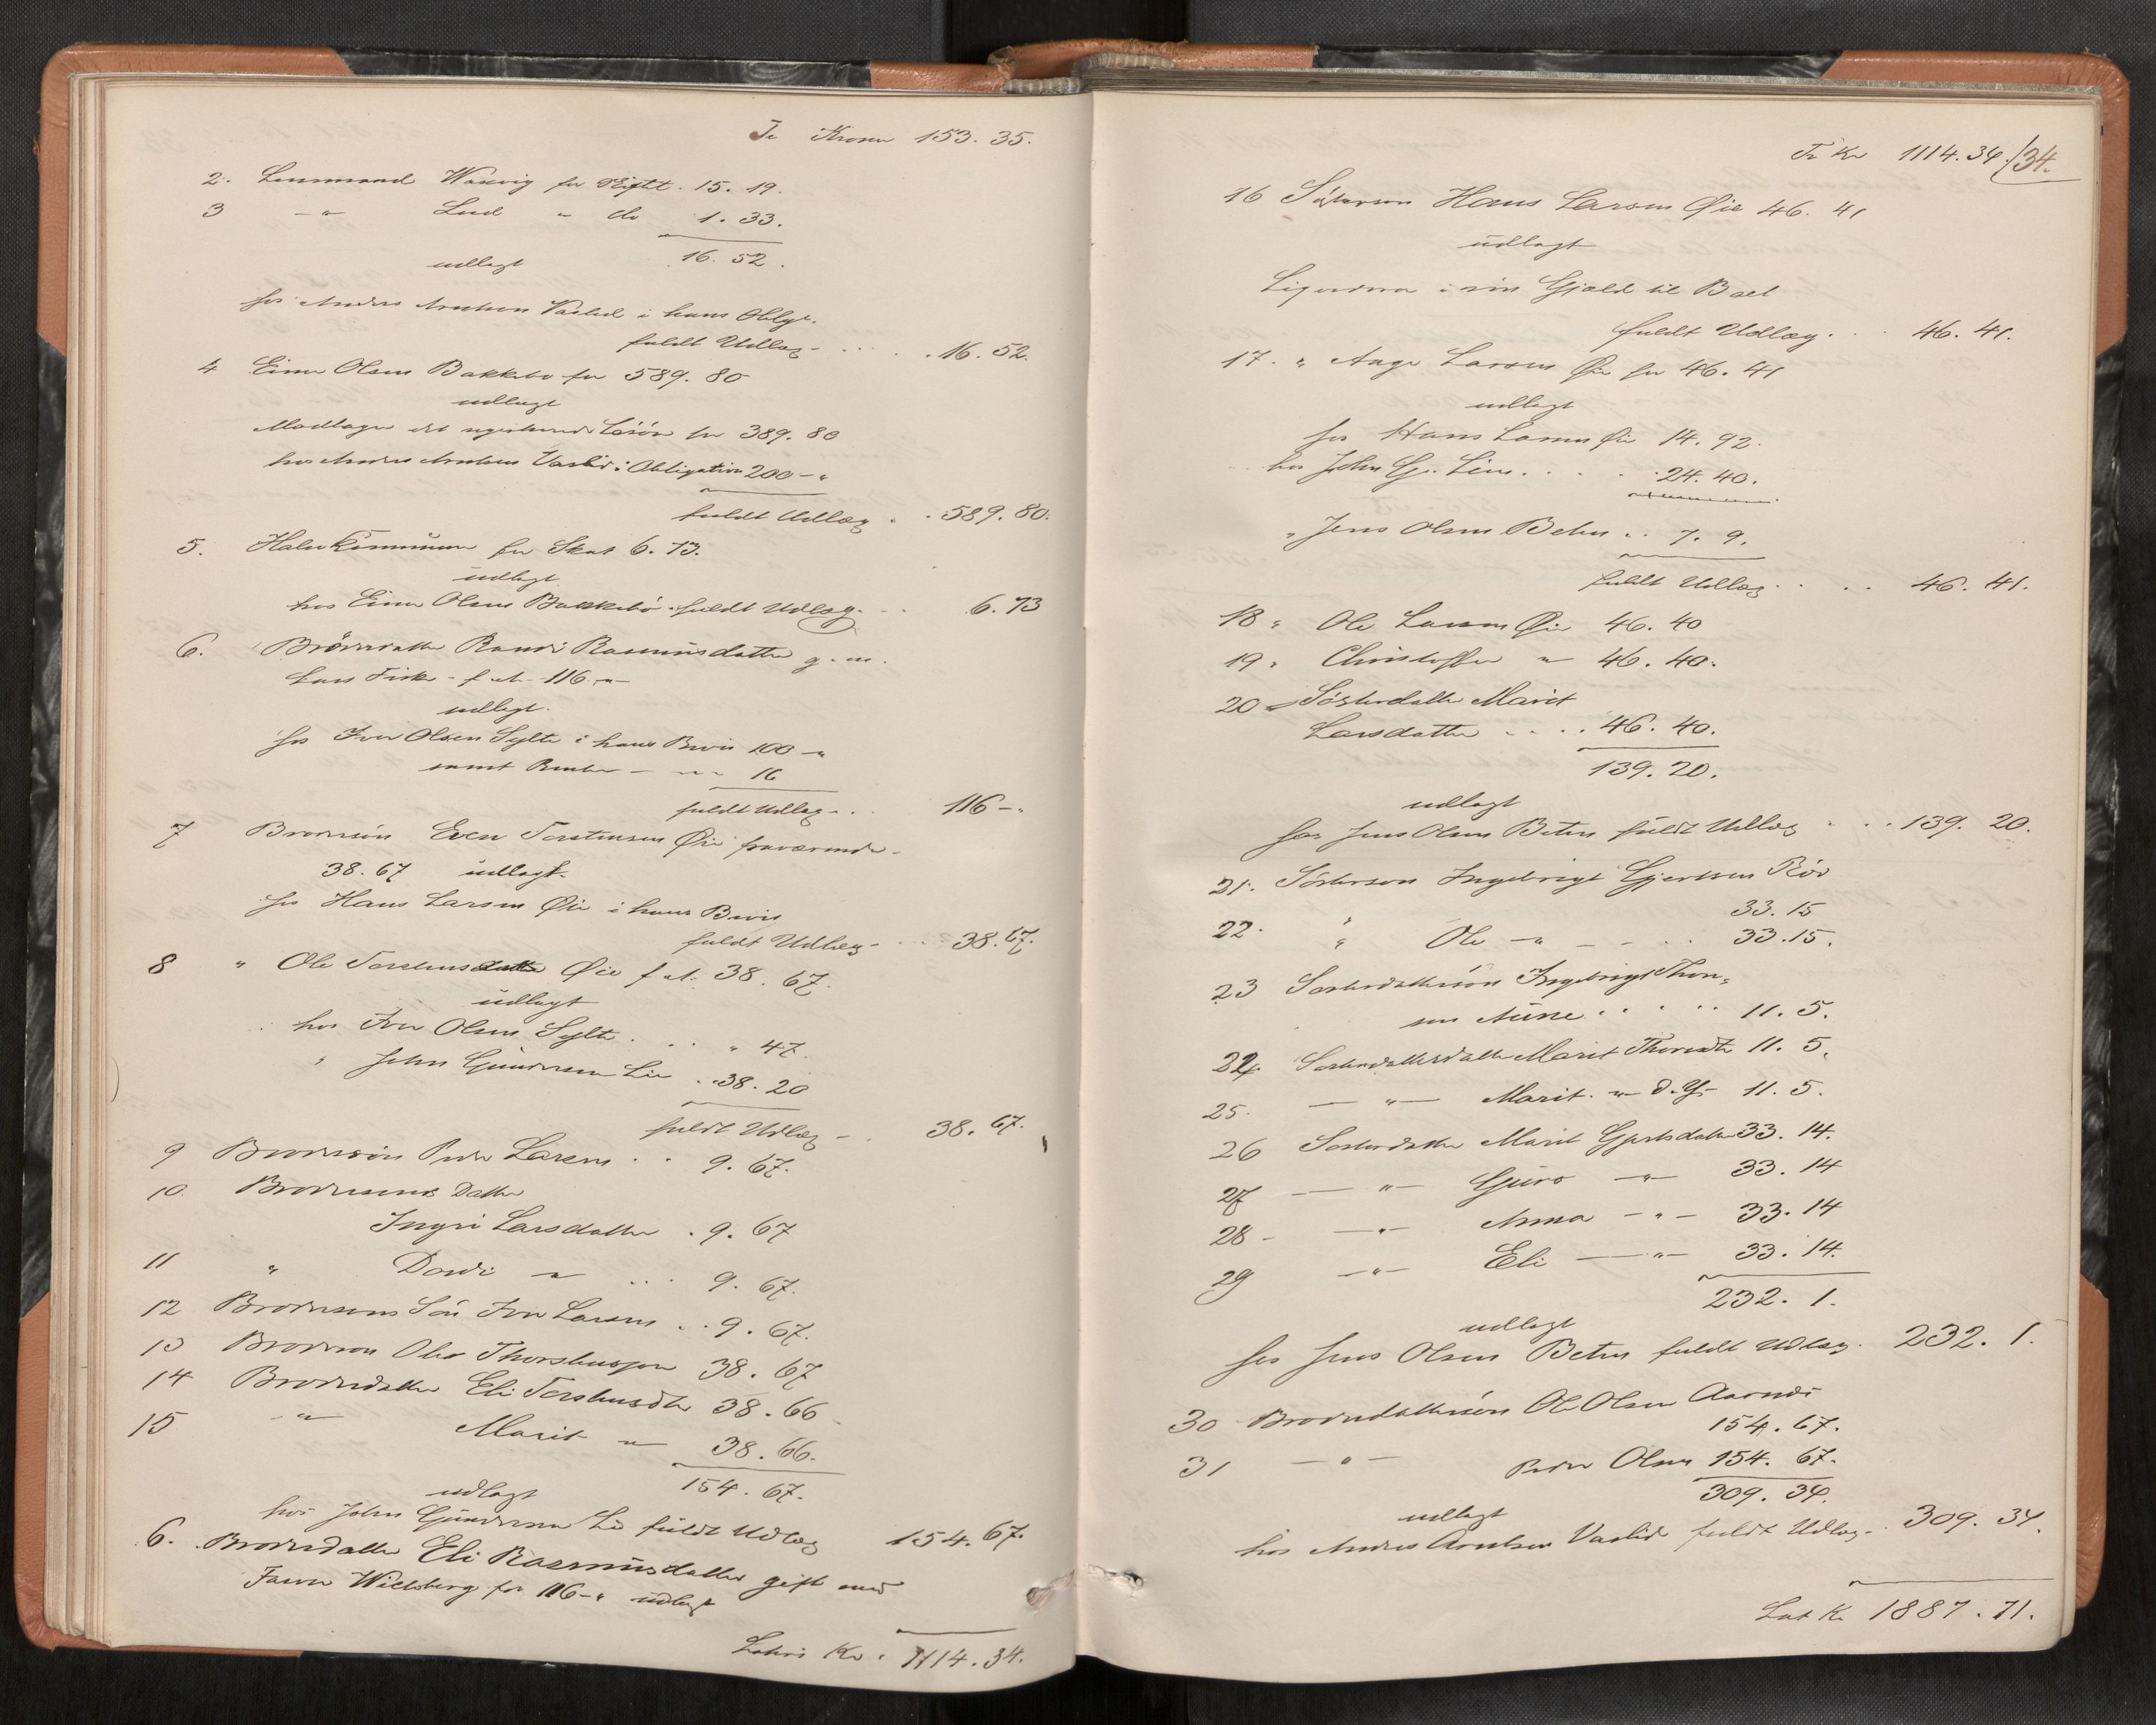 Tr Kroner 153.35.
2. Lensmand Waxvig for Skift. 15.19.
3 -"- Lied " do 1.33.
16.52.
udlagt
hos Anders Arntsen Vaslid i hans Oblg.
fuldt Udlæg . . . 16.52.
4 Einar Olsen Bakkebø for 589.80
udlagt
Modtager det for 389.80
hos Anders Arntsen Vaslid i Obligation 200-"
fuldt Udlæg . . 589.80.
5. Halse Kommune for Skat 6.73.
udlagt
hos Einar Olsen Bakkebø fuldt Udlæg - . . 6.73
6. Broderdatter Randi Rasmusdatter g. m.
Lars Fiske - f. A. 116 -"-
udlagt.
hos Iver Olsen Sylte i hans Bevis 100 -"
samt Renter - -"- 16
fuldt Udlæg - . . 116 -"
7 Brodersön Even Torstensen Øie fraværende -
38.67 udlagt.
hos Hans Larsen Øie i hans Bevis
fuldt Udlæg - . . 38.67.
8 " Ole Torstensdatter Øie f. A. 38.67.
udlagt
hos Iver Olsen Sylte . . . " 47.
" John Gundersen Lie . 38.20
fuldt Udlæg - . 38.67.
9 Brodersön Peder Larsen . . 9.67.
10. Brodersøns Datter
Ingri Larsdatter . 9.67
11 " Dordi " . . . 9.67.
12 Brodersøns Sön Iver Larsen . . 9.67.
13 Broderson Ole Thorstensson 38.67
14 Broderdatter Eli Torstensdtr 38.66
15 -"- Marit " 38.66.
154.67.
udlagt
hos John Gundersen Lie fuldt Udlæg 154.67.
6. Broderdatter Eli Rasmusdatter gift med
for 116-" udlagt
Lateris Kr. 1114.34.
Tr Kr 1114.34./34.
16 Sösterson Hans Larsen Øie 46.41
udlagt
Liqviderer i sin Gjæld til Boet
fuldt Udlæg . . . 46.41.
17. " Aage Larsen Øie for 46.41
udlagt
hos Hans Larsen Øie 14.92.
hos John G. Lien . . . . 24.40.
" Jens Olsen Beten . . 7.9.
fuldt Udlæg . . . . 46.41.
18 " Ole Larsen Øie 46.40
19 " Christoffer " 46.40.
20 " Sösterdatter Marit
Larsdatter . . . . 46.40.
139.20.
udlagt
hos Jens Olsen Beten fuldt Udlæg . . . 139.20.
21. Sösterson Ingebrigt Gjertsen Röv
33.15
22. " " Ole -"- - - . . 33.15.
23 Sösterdattersön Ingebrigt Thor-
sen Aune . . . . . 11.5.
24. Sösterdatterdatter Marit Thorsdtr 11.5.
25. -"- Marit -"- d.y. 11.5.
26 Sösterdatter Marit Gjertsdatter 33.14.
27 -"- Guro -"- 33.14
28 - -"- Anna -"- 33.14
29 -"- Eli -"- 33.14.
232.1.
udlagt
hos Jens Olsen Beten fuldt Udlæg. 232.1.
30 Broderdattersön Ole Olsen Aarnes
154.67.
31 -"- Peder Olsen 154.67.
309.34.
udlagt
hos Anders Arntsen Vaslid fuldt Udlæg . . 309.34.
Lat Kr 1887.71.